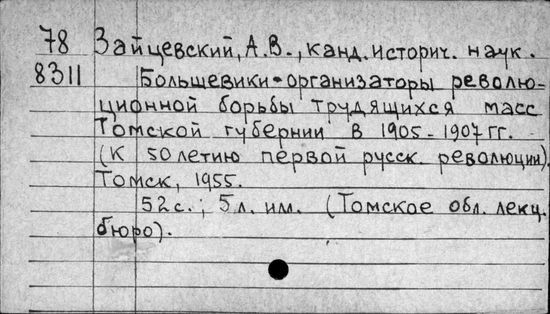 78 Зайцевский, А.В., канд. историч. наук.
8311 Большевики-организаторы револю-
ционной борьбы трудящихся масс
Томской губернии в 1905-1907 гг.
(К 50летию первой русск. революции).
Томск, 1955.
52 с.; 5 л. им. (Томское обл. лекц.
бюро).